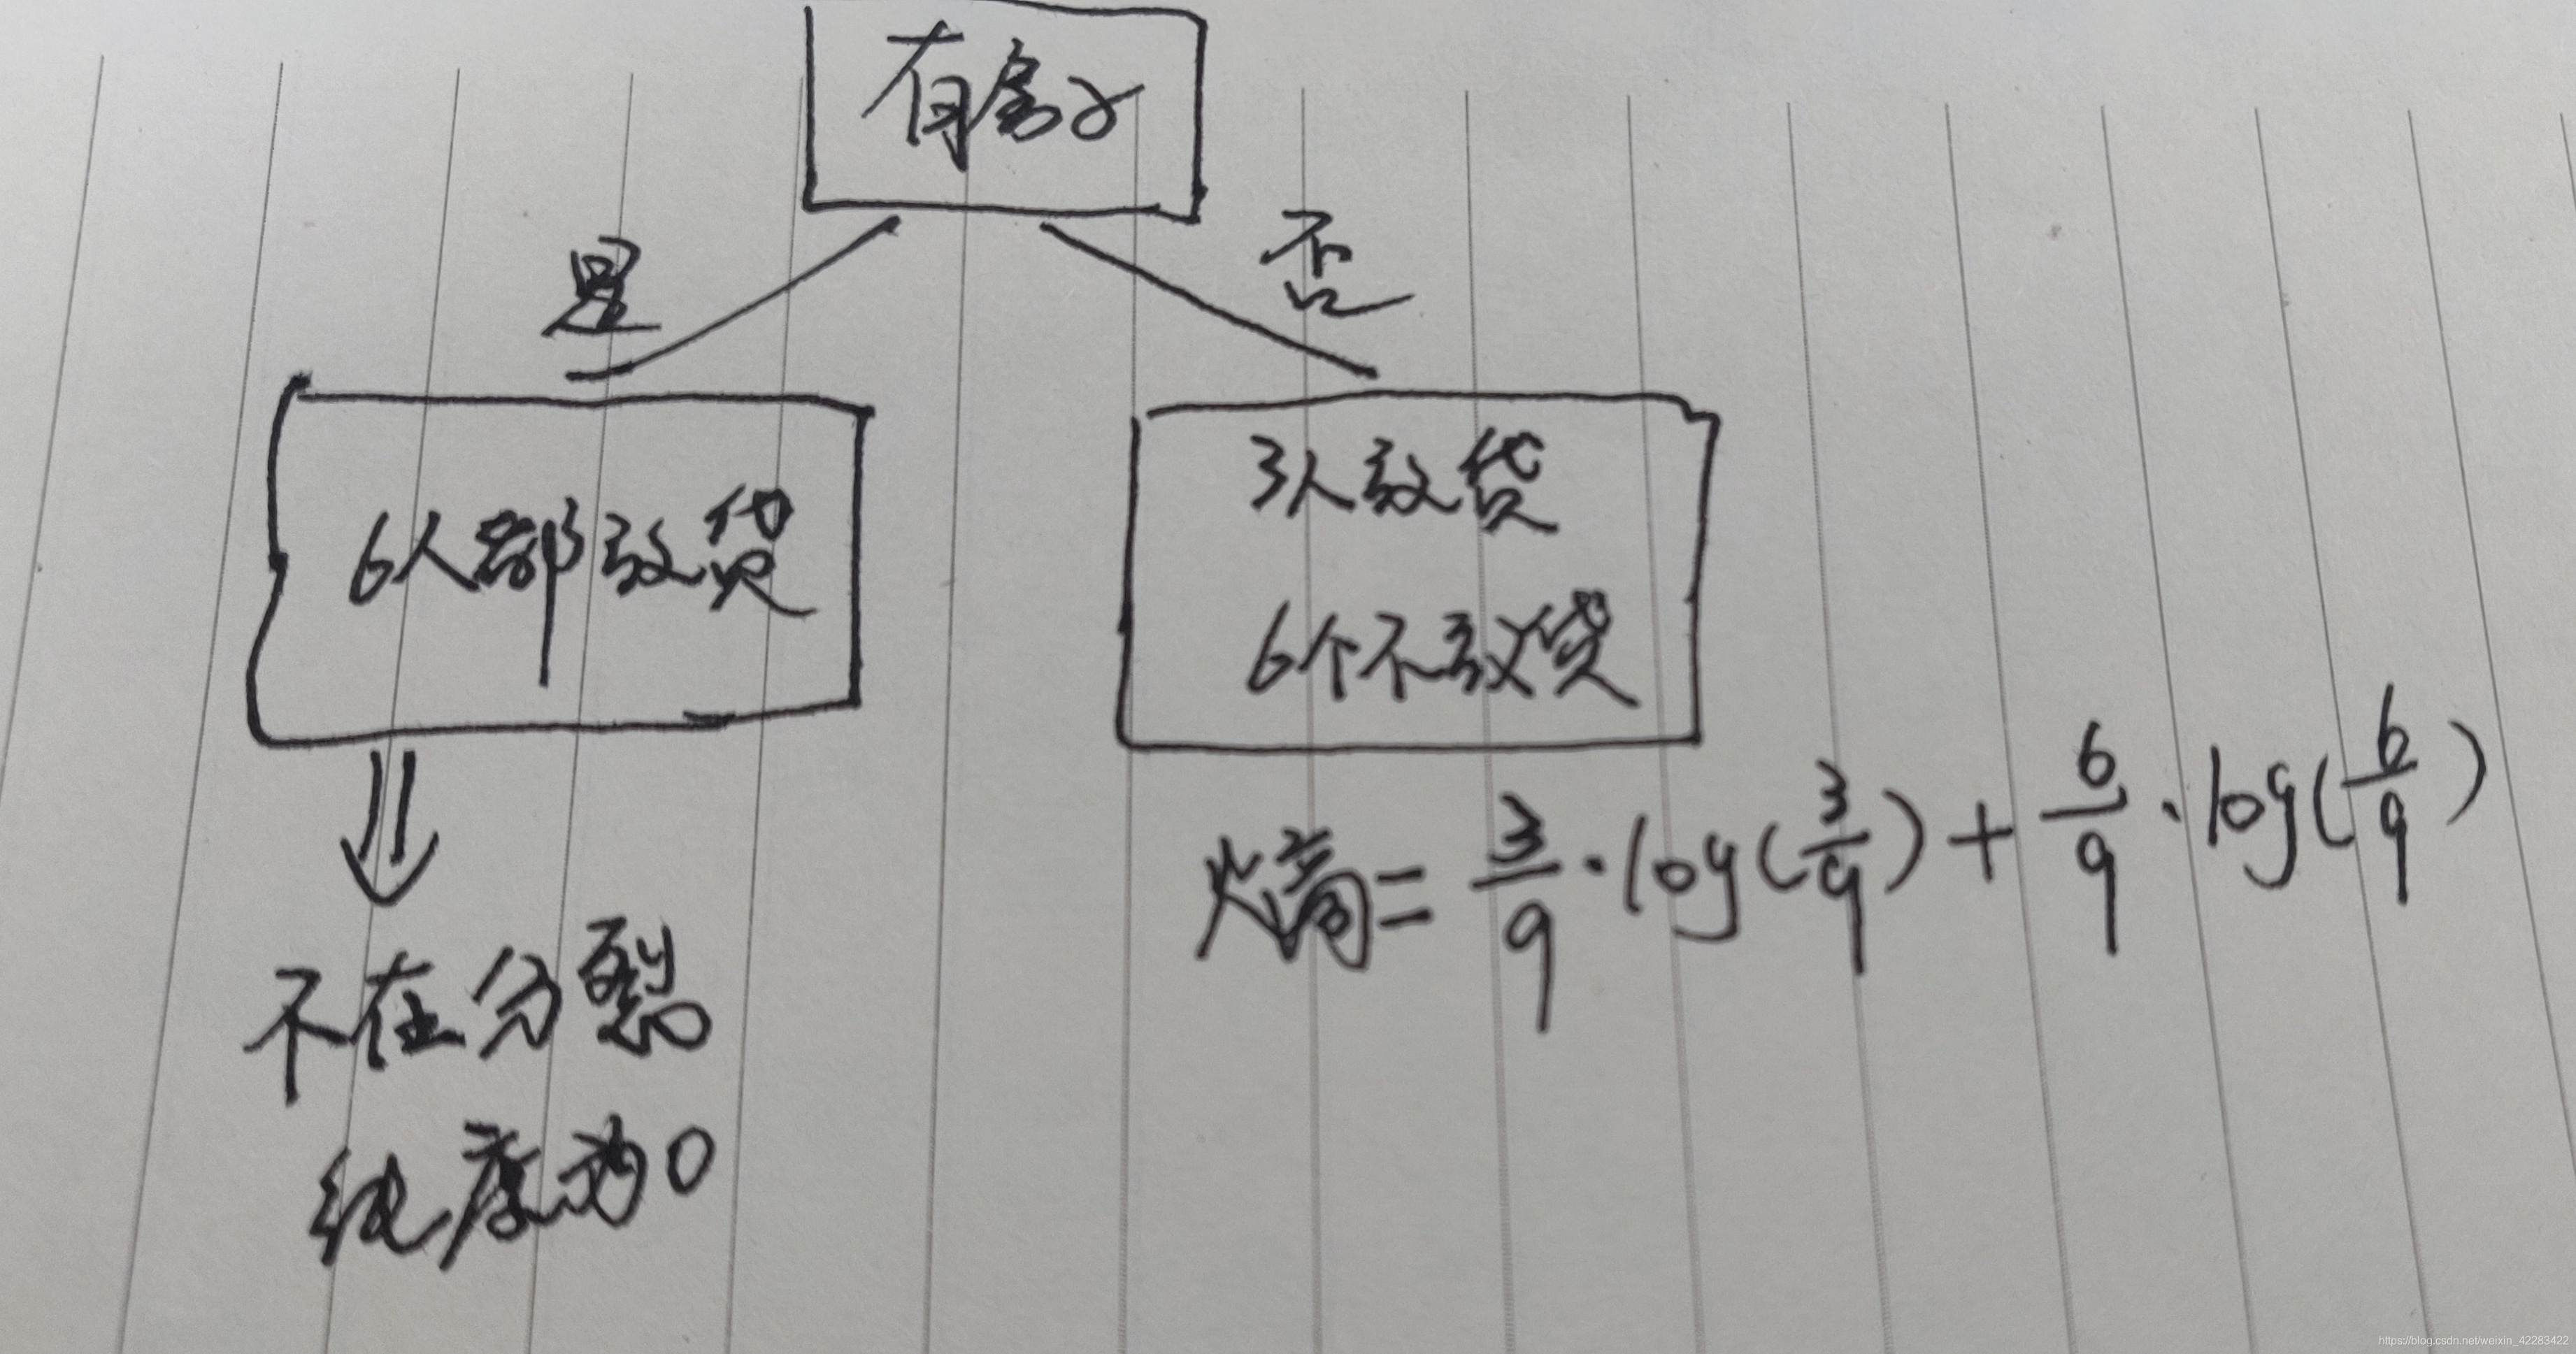 有房子
是
否
6人都放贷
3人放贷
6个不放贷
熵= 3/9 · log(3/9) + 6/9 · log(6/9)
不在分裂
纯度为0
https://blog.csdn.net/weixin_42283422